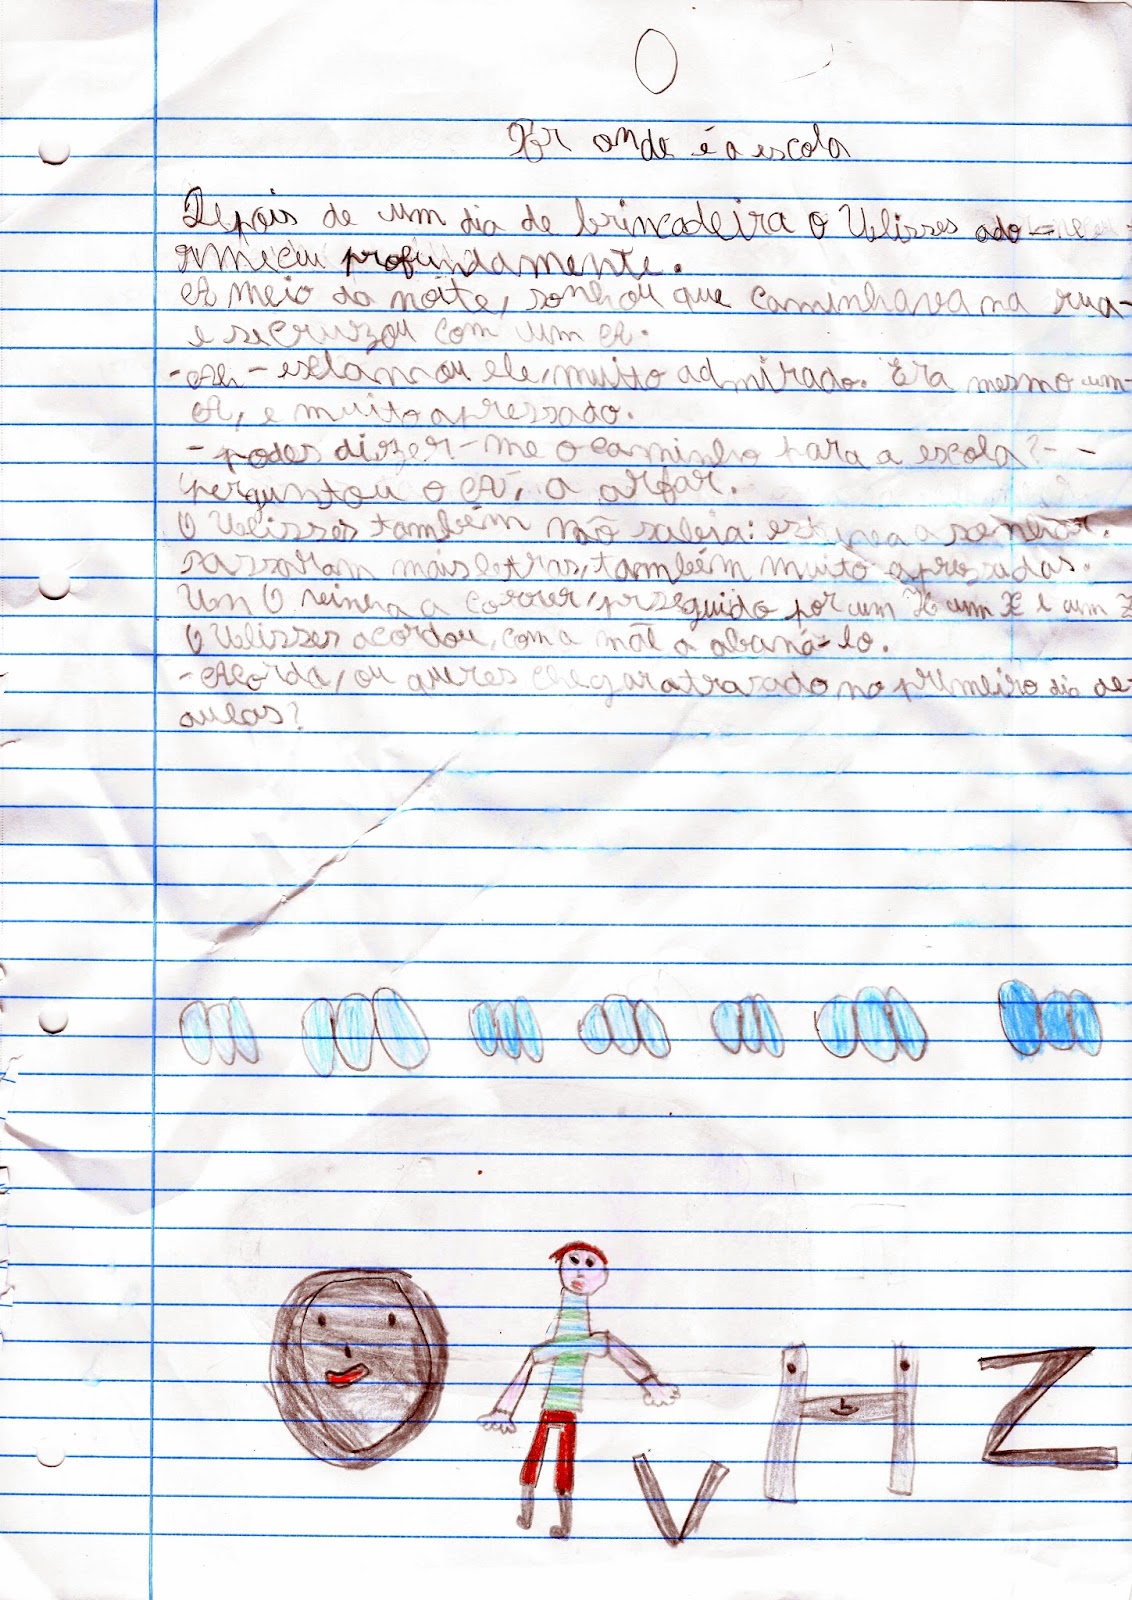 Por onde é a escola
Depois de um dia de brincadeira o Ulisses ado-
rmeceu profundamente.
A meio da noite, sonhou que caminhava na rua
e se cruzou com um A.
-Ah - esclamou ele, muito admirado. Era mesmo um
A, e muito apressado.
- podes dizer-me o caminho para a escola? -
perguntou o A, a arfar.
O Ulisses também não sabia: estava a sonhar.
Passaram mais letras, também muito apressadas.
Um O vinha a correr, perseguido por um H um X e um Z
O Ulisses acordou, com a mãe a abaná-lo.
- Acorda, ou queres chegar atrasado no primeiro dia de
aulas?
V H Z